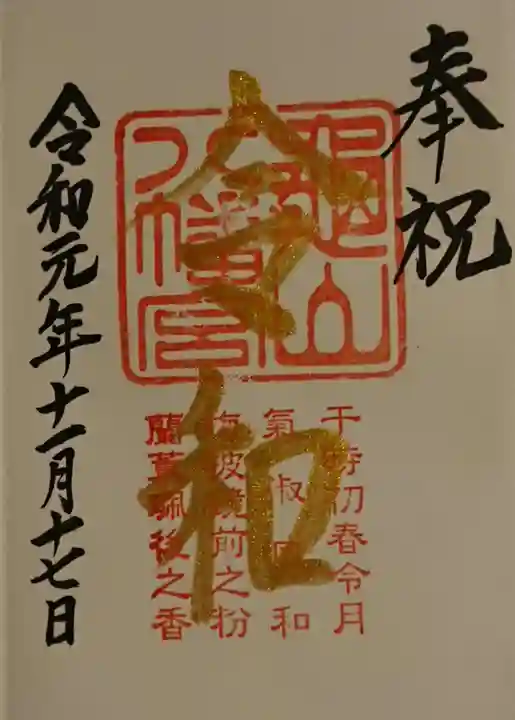 奉祝
令和
亀山
八幡宮
于時初春令月
氣淑風和
梅披鏡前之粉
蘭薫珮後之香
令和元年十一月十七日